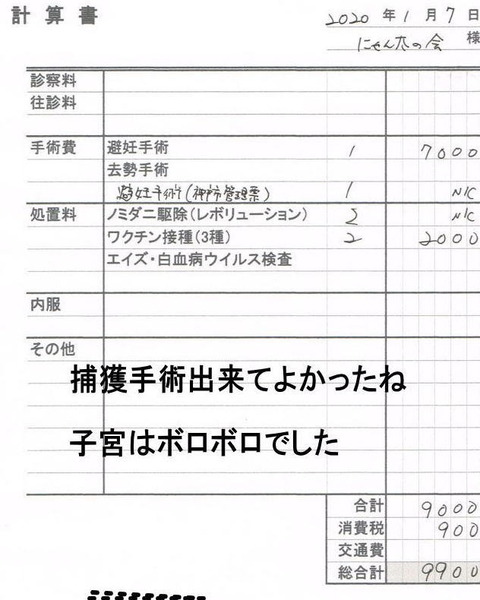 計算書
2020年1月7日
にゃん太の会 様
診察料
往診料
手術費 避妊手術 1 7000
去勢手術
避妊手術(神戸市管理票) 1 N/C
処置料 ノミダニ駆除(レボリューション) 2 N/C
ワクチン接種(3種) 2 2000
エイズ・白血病ウイルス検査
内服
その他
捕獲手術出来てよかったね
子宮はボロボロでした
合計 9000
消費税 900
交通費
総合計 9900